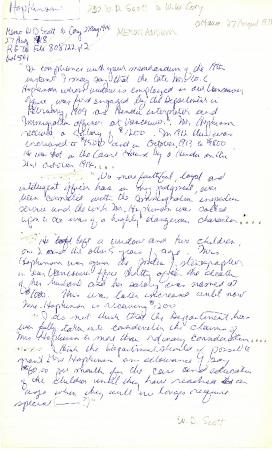 Hopkinson
Memo W D Scott to W W Cory
Ottawa 27 August 1918
27 Aug 1918
RG 76 File 808722 pt 2
Memorandum
In compliance with your memorandum of the 19th
instant I may say that the late Mr. W. C.
Hopkinson whose widow is employed in our Vancouver
office was first engaged by the Department in
February, 1909 as Hindu interpreter and
Immigration officer at Vancouver. Mr. Hopkinson
received a salary of $1200. In 1912 this was
increased to $1500 and in October, 1913 to $1800.
He was shot in the Court House by a Hindu on the
21st October 1914.
"No more faithful, loyal and
intelligent officer has in my judgment, ever
been connected with the Immigration inspection
service and the work Mr. Hopkinson was called
upon to do was of a highly dangerous character
"He left a widow and two children,
Mrs.
Hopkinson was given the position of stenographer
in our Vancouver office shortly after the death
of her husband and her salary was named at
This was later increased until now
Mrs. Hopkinson is receiving
"I do not think that the Department has
fully taken into consideration the claims of
Mrs Hopkinson to more than ordinary consideration
"I think the Department should if possible
grant Mrs Hopkinson an allowance of say
per month for the care and education
of the children until they have reached an
age when they will no longer require
special
W. D. Scott